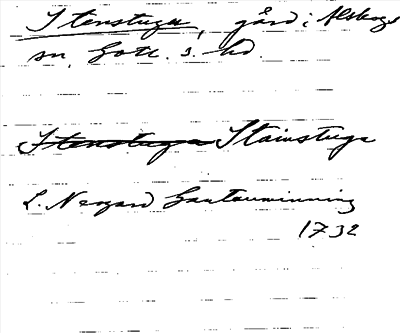 Stenstuga, gård i Alskogs
sn, Gotl. s. hd.
Stenstuga Stainstuga
L. Nergard
1732